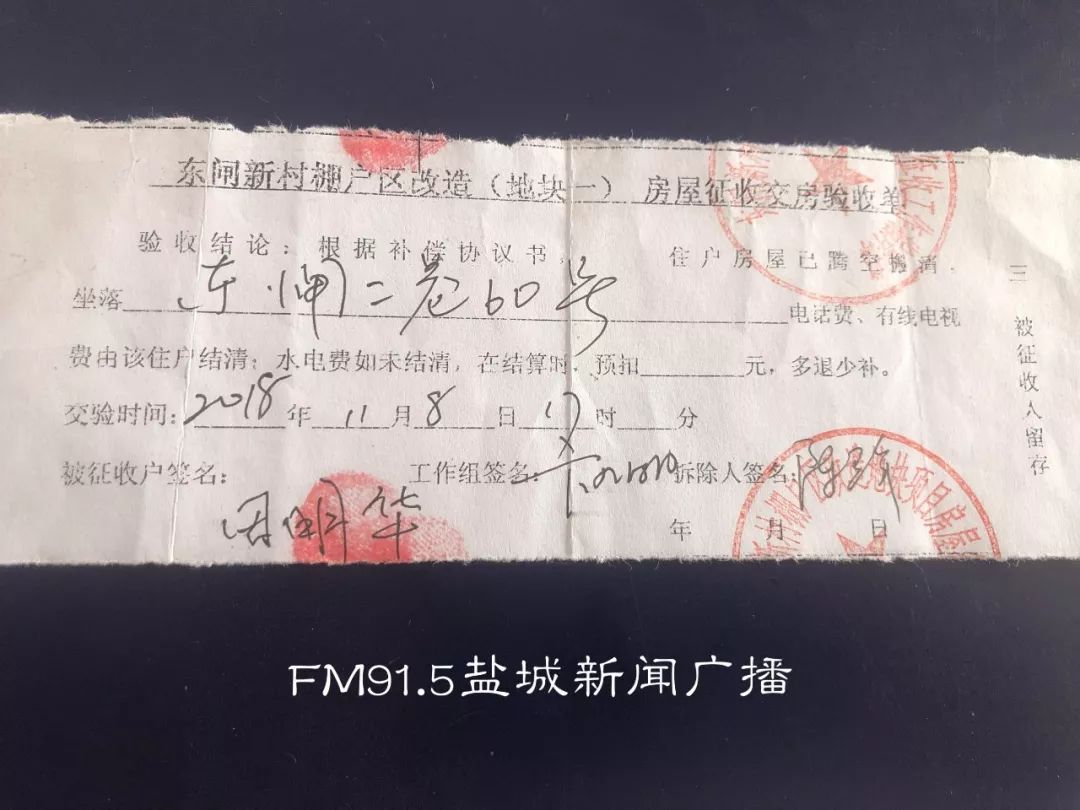 东闸新村棚户区改造（地块一） 房屋征收交房验收单
验收结论：根据补偿协议书， 住户房屋已腾空搬清，
坐落 东闸二巷60号 电话费、有线电视
费由该住户结清；水电费如未结清，在结算时，预扣______元，多退少补。
交验时间：2018年11月8日17时 分
被征收户签名： 工作组签名： 拆除人签名：
周明华 陈
年 月 日
三 被征收人留存
FM91.5盐城新闻广播